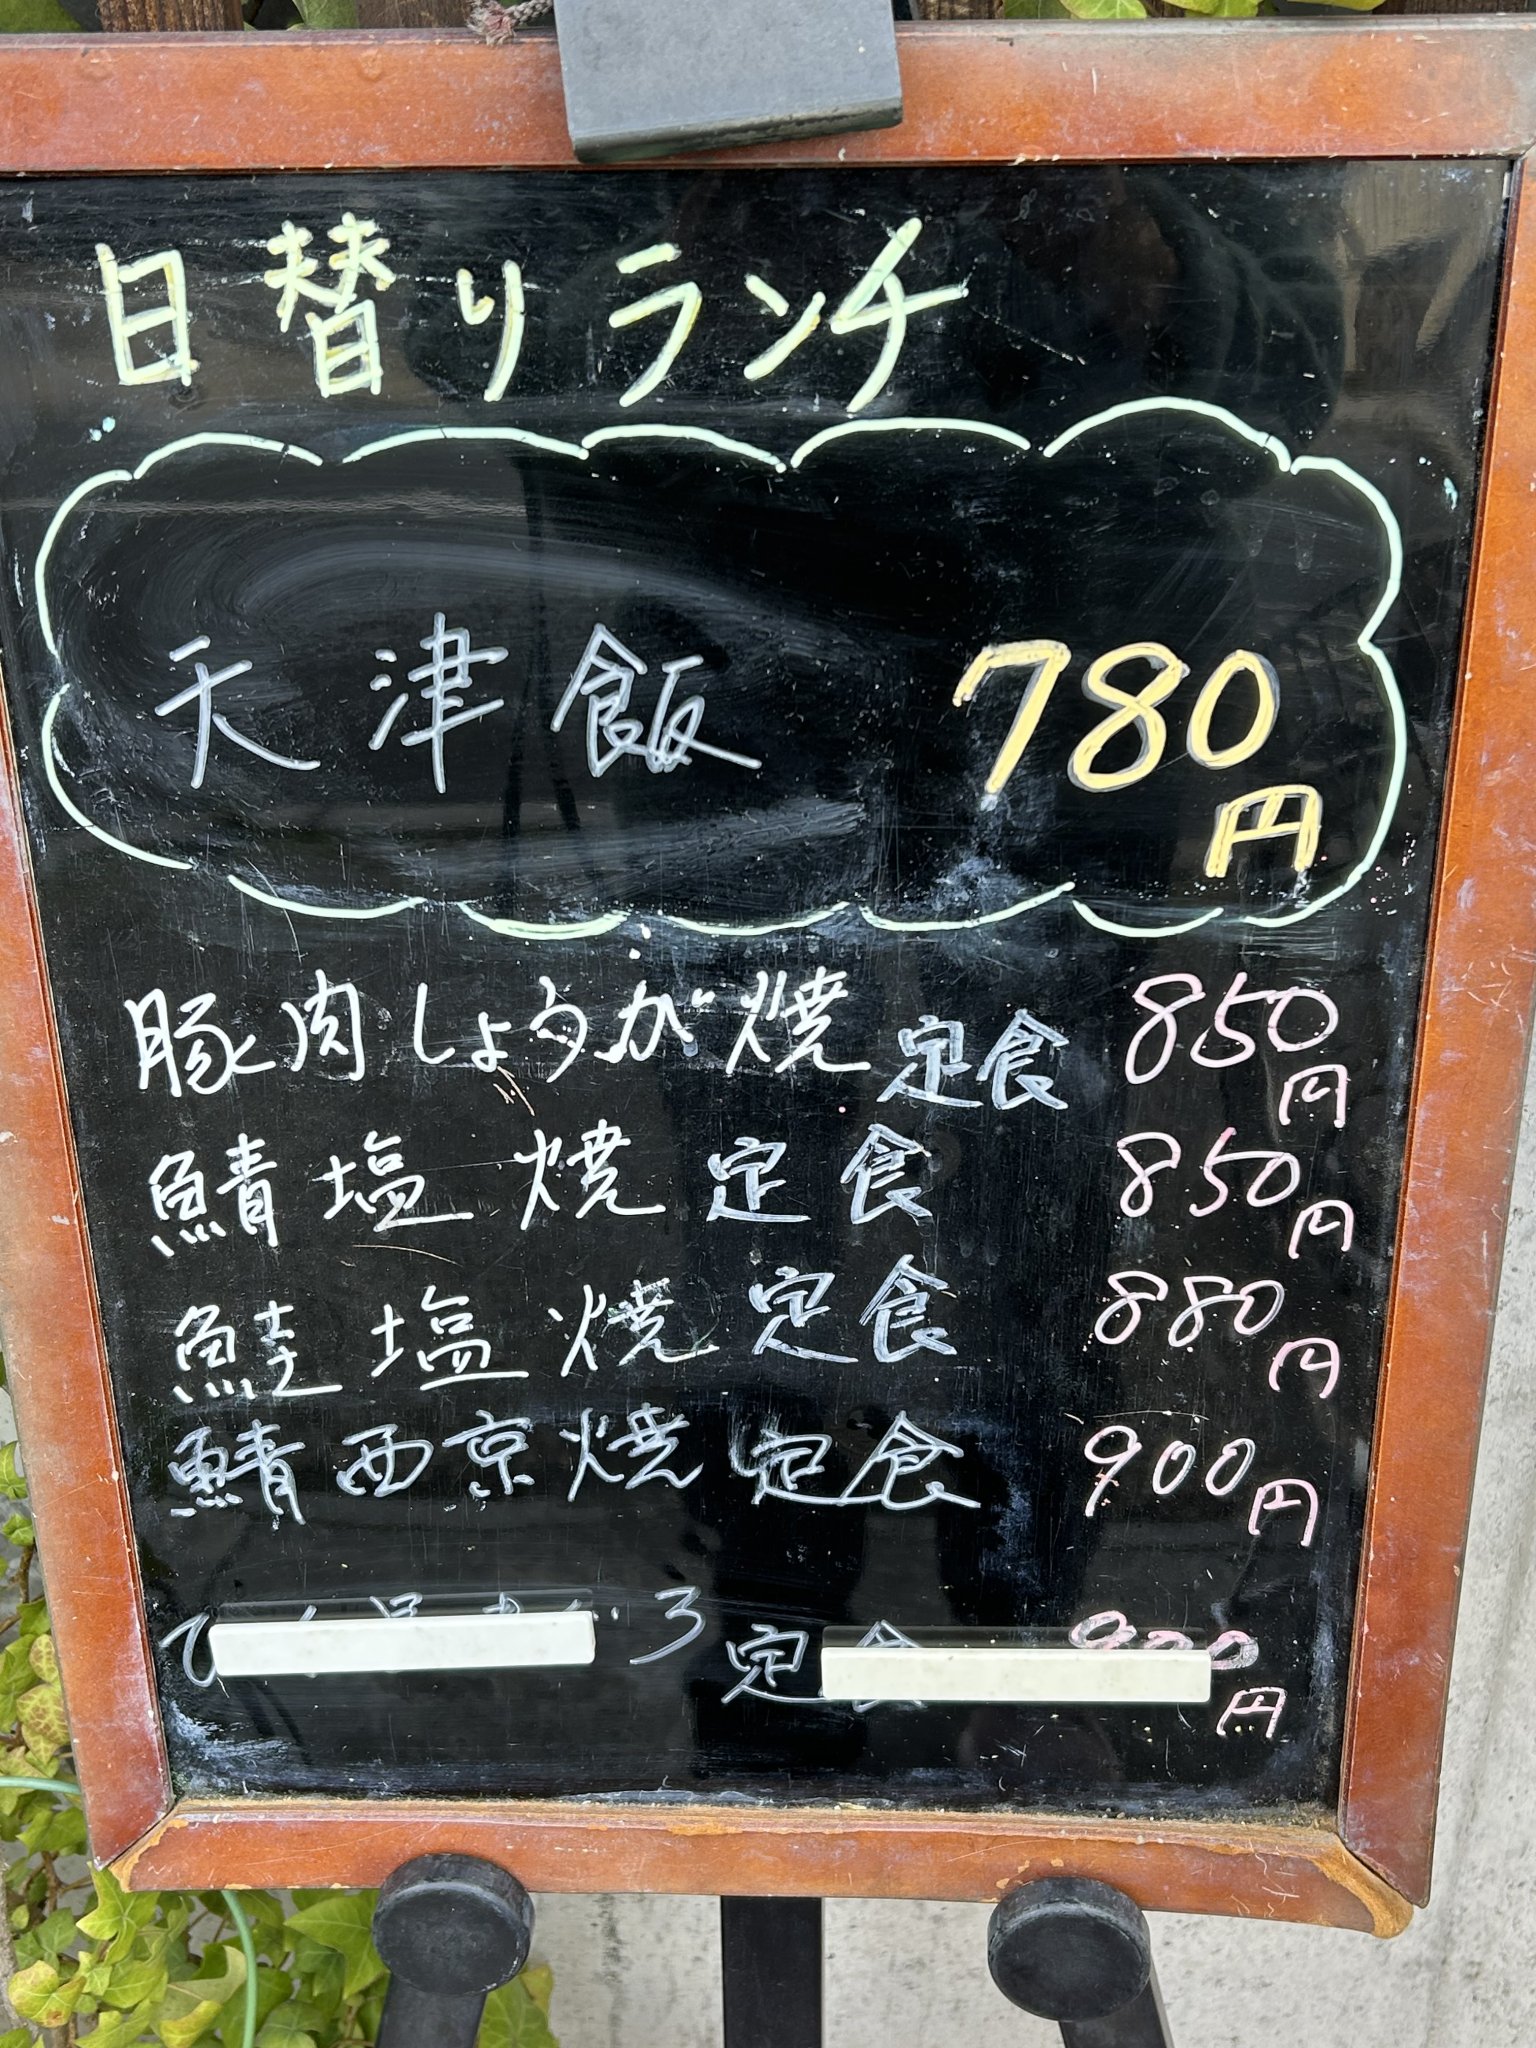 日替りランチ
天津飯 780円
豚肉しょうが焼定食 850円
鯖塩焼定食 850円
鮭塩焼定食 880円
鯖西京焼定食 900円
定食 円